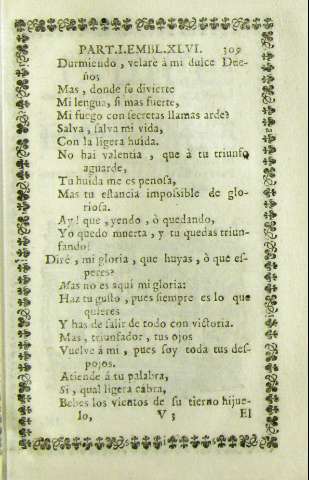 PART.I.EMBL.XLVI. 309
Durmiendo, velarè à mi dulce Due-
ño;
Mas, donde se divierte
Mi lengua, si mas fuerte,
Mi fuego con secretas llamas arde?
Salva, salva mi vida,
Con la ligera huida.
No hai valentia, que à tu triunfo
aguarde,
Tu huida me es penosa,
Mas tu estancia impossible de glo-
riosa.
Ay! que, yendo, ò quedando,
Yo quedo muerta, y tu quedas triun-
fando!
Dirè, mi gloria, que huyas, ò que es-
peres?
Mas no es aqui mi gloria:
Haz tu gusto, pues siempre es lo que
quieres
Y has de salir de todo con victoria.
Mas, triunfador, tus ojos
Vuelve à mi, pues soy toda tus des-
pojos.
Atiende à tu palabra,
Si, qual ligera cabra,
Bebes los vientos de su tierno hijue-
lo, V 3 El